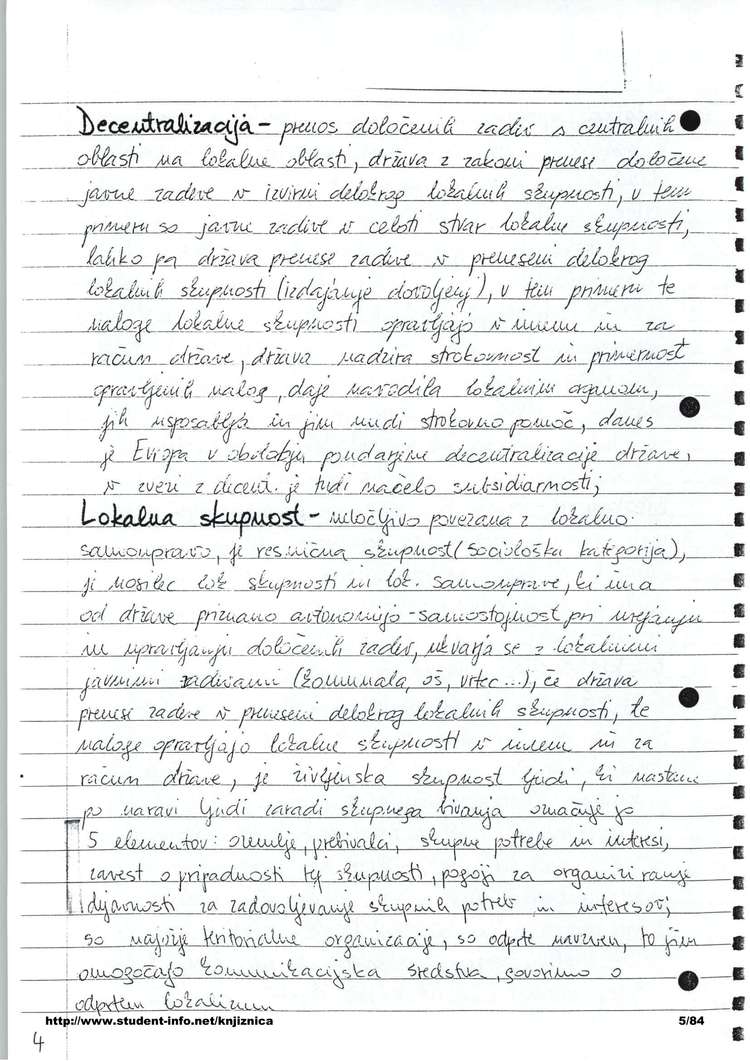 Decentralizacija – prenos določenih zadev s centralnih
oblasti na lokalne oblasti, država z zakoni prenese določene
javne zadeve v izvirni delokrog lokalnih skupnosti, v tem
primeru so javne zadeve v celoti stvar lokalne skupnosti,
lahko pa država prenese zadeve v preneseni delokrog
lokalnih skupnosti (izdajanje dovoljenj), v tem primeru te
naloge lokalne skupnosti opravljajo v imenu in za
račun države, država nadzira strokovnost in primernost
opravljenih nalog, daje navodila lokalnim organom,
jih usposablja in jim nudi strokovno pomoč, danes
je Evropa v obdobju poudarjene decentralizacije države,
v zvezi z decent. je tudi načelo subsidiarnosti;
Lokalna skupnost – neločljivo povezana z lokalno
samoupravo, je resnična skupnost (sociološka kategorija),
je nosilec lok skupnosti in lok. samouprave, ki ima
od države priznano avtonomijo – samostojnost pri urejanju
in upravljanju določenih zadev, ukvarja se z lokalnimi
javnimi zadevami (komunala, oš, vrtec ...), če država
prenese zadeve v preneseni delokrog lokalnih skupnosti, te
naloge opravljajo lokalne skupnosti v imenu in za
račun države, je življenska skupnost ljudi, ki nastane
po naravi ljudi zaradi skupnega bivanja označuje jo
5 elementov: ozemlje, prebivalci, skupne potrebe in interesi,
zavest o pripadnosti tej skupnosti, pogoji za organiziranje
dejavnosti za zadovoljevanje skupnih potreb in interesov;
so najožje teritorialne organizacije, so odprte navzven, to jim
omogočajo komunikacijska sredstva, govorimo o
odprtem lokalizmu
http://www.student-info.net/knjiznica 5/84
4